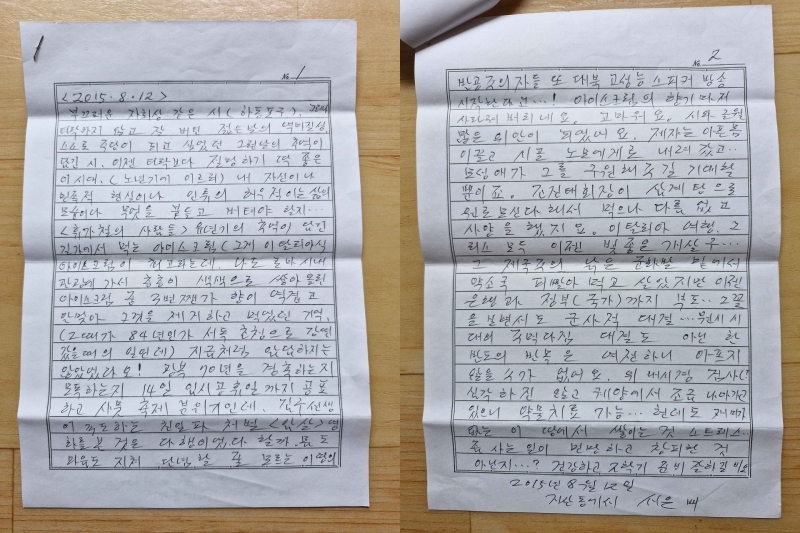 № 1
<2015.8.12>
부끄러운 자화상 같은 시(하동포구),
타락하지 않고 잘 버틴 젊은날의
스스로 죽안이 되고 싶었던 그런날의 추억이
담긴 시. 이젠 타락보다 절망하기 딱 좋은
이 시대. (노년기에 이르러) 내 자신이나
민족적 현실이나 인류의 허우적이는 삶의
모습이나 무엇을 붙들고 버텨야 할지…
<휴가철의 사람들> 유년기의 추억이 담긴
길가에서 먹는 아이스크림(그게 이탈리아식
아이스크림이 최고라는데. 나도 로마시내
광장에 가서 층층이 색색으로 쌓아 올린
아이스크림 중 3번짼가 향이 역겹고
안맞아 그것을 제거하고 먹었던 기억.
(그때가 84년인가 서독 초청으로 강연
갔을때의 일인데) 지금처럼 암담하지는
않았었다오! 광복 70년을 경축하는지
모독하는지 14일 임시공휴일까지 공포
하고 사뭇 축제 분위기인데. 김주선생
이 주도하는 친일파 처벌 <암살> 영
화를 본 것도 다행이었다 할까. 몸도
마음도 지쳐 단념할 줄 모르는 이 땅의
№ 2
반공주의자들 또 대북 고성능 스피커 방송
시작한다고…! 아이스크림의 향기마저
사라져 버리네요. 고마워요. 시와 그림
많은 위안이 되었어요. 제자는 아픈 몸
이끌고 시골 노모에게로 내려갔고..
모성애가 그를 구원해주길 기대할
뿐이죠. 진진태회장이 삼계탕으로
위로 보신다 해서 먹으나 다름 없고
사양을 했지요. 이탈리아 여행, 그
리스 모두 이젠 빛좋은 개살구…
그 제국주의 낡은 문화발 밑에서
약소국 피빨아 먹고 살았지만 이젠
은행과 정부(국가)까지 부도.. 그꼴
을 보면서도 군사적 대결… 원시시
대의 주먹다짐 대결도 아닌 한
반도의 비극은 여전하니 아프지
않을 수가 없어요. 위 내시경 검사는
심각하진 않고 궤양에서 조금 나아가고
있으니 약물치료 가능… 헌데도 재미가
없는 이 땅에서 쌓이는 것 스트레스..
좀 사는 일이 민망하고 창피한 것
아닌지…? 건강하고 2학기 준비 잘하길 비오
2015년 8월 12일
지산동에서